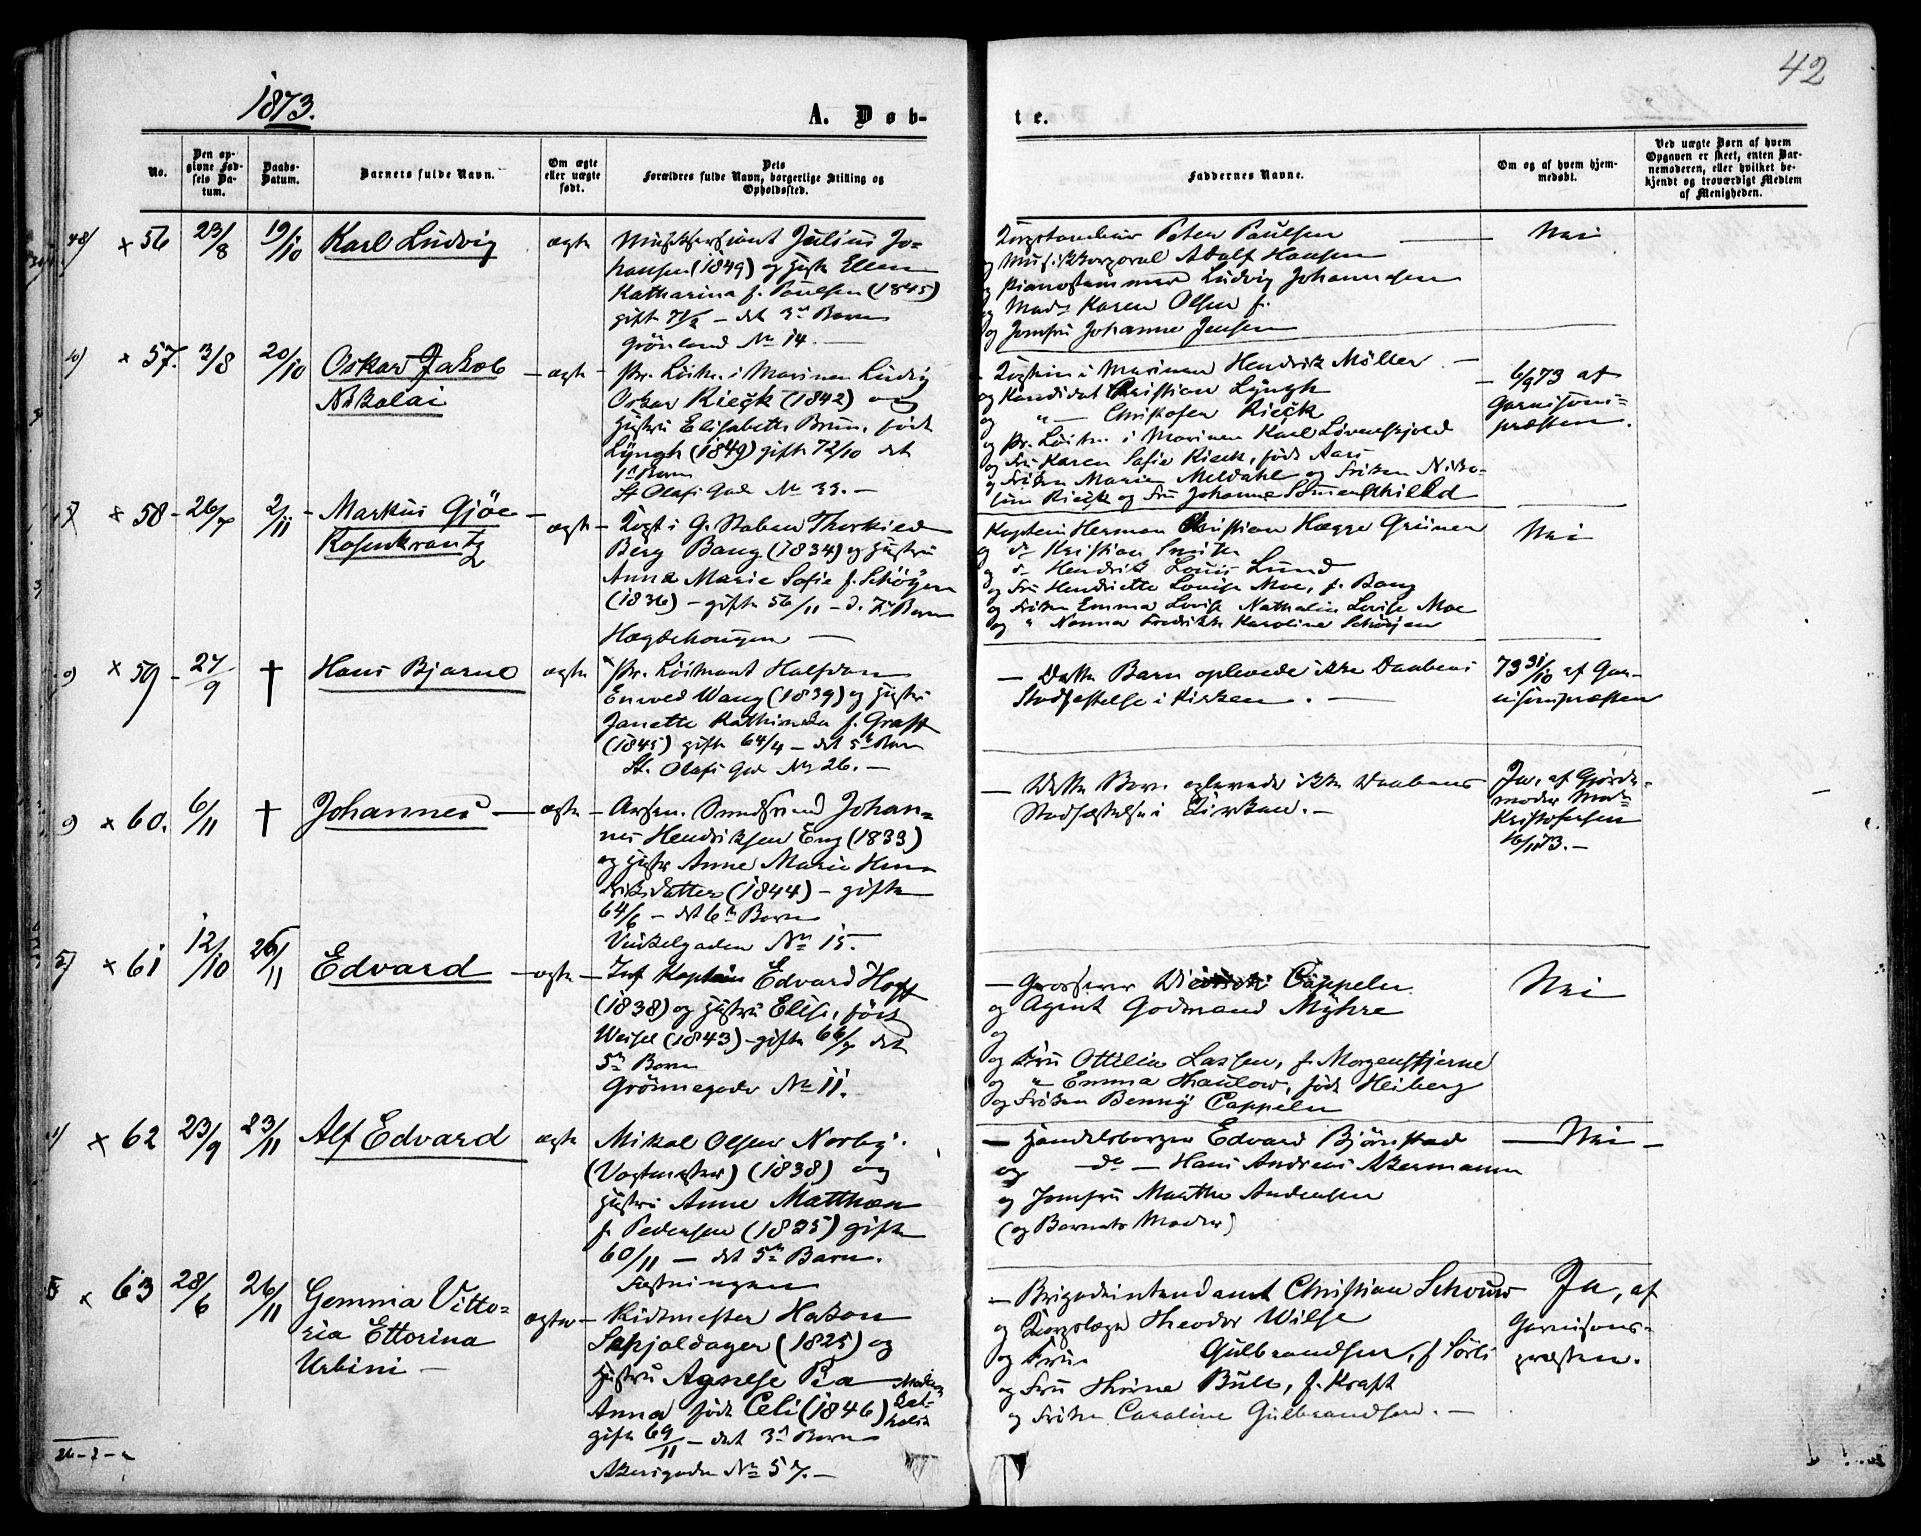 42
1873.
A. Døb-
te.
No.
Den op-
givne Fød-
sels Da-
tum.
Daabs-
Datum.
Barnets fulde Navn.
Om ægte
eller uægte
født.
Dets
Forældres fulde Navn, borgerlige Stilling og
Opholdssted.
Faddernes Navne.
Om og af hvem hjem-
medøbt.
Ved uægte Børn af hvem
Opgaven er skeet, enten Bar-
nemoderen, eller hvilket be-
kjendt og troværdigt Medlem
af Menigheden.
x 56 23/8 19/10 Karl Ludvig ægte
Julius Jo-
hansen (1849) og Hustr Ellen
Katharina f. Paulsen (1845)
gift 71/2 - det 3de Barn
Grönland No 14. -
Korpstambur Peter Paulsen
og Musikkorporal Adolf Hansen
og Ludvig Johannesen
og Mad. Karen Olsen f.
og Jomfru Johanne Jensen
Nei
x 57. 3/8 20/10 Oskar Jakob
Nikolai
- ægte - Pr. Löitn. i Marinen Ludvig
Oskar Rieck (1842) og
Hustru Elisabeth Brun, født
Lyngh (1849) gift 72/10 det
1ste Barn
St Olafs Gad No 33. -
- Kaptein i Marinen Hendrik Möller -
og Kandidat Christian Lyngh
og " - Christofer Rieck
og Pr. Löitn. i Marinen Karl Lövenskjold
og Fru Karen Sofie Rieck, født Aars
og Fröken Marie Meldahl og Fröken Niko-
line Rieck og Fru Johanne
- 6/9 73 af
Garnisons=
præsten.
x 58 - 26/7 2/11 - Markus Gjöe
Rosenkrantz
- ægte - Kapt i G. Staben
Berg Bang (1834) og Hustru
Anna Marie Sofie f. Schörgen
(1836) - gift 56/11 - d. Barn
Hægdehougen -
Kaptein Herman Christian Hægge Grüner
og do Kristian Smith
og do Hendrik Louis Lund
og Fru Henriette Louise Moe, f. Bang
og Fröken Emma Louise Nathalie Lovise Moe
og " Nanna Fredrikke Karoline Schörgen
Nei
x 59 - 27/9 † Hans Bjarne ægte
Pr. Löitnant Halfdan
Wang (1839) og Hustru
Janette Kathinka f. Grafft
(1845) gift 64/4 - det 5te Barn
St. Olafs Gd No 26. -
- Dette Barn oplevede ikke Daabens
Stadfæstelse i Kirken. -
73 31/10 af Gar-
nisonspræsten
x 60. 6/11 † Johannes - ægte
- Arsen. Johan-
nes Hendriksen Eng (1833)
og Hustr Anne Marie Hen-
driksdatter (1844) - gift
64/6 - det 6te Barn
Vinkelgaden No 15. -
- Dette Barn oplevede ikke Daabens
Stadfæstelse i Kirken. -
Ja, af Gjorde-
moder Mad.
Kristofersen
6/11 73. -
x 61 12/10 26/11 Edvard - ægte
- Inf Kaptein Edvard Hoff
(1838) og Hustru Elise, født
Weisel (1843) - gift 66/7 det
5te Barn
Grönnegade No 11.
- Grosserer Cappelen
og Agent Godmand Myhre
og
og Fru Ottilia Lassen, f. Morgenstjerne
og " Emma Thaulow, født Heiberg
og Fröken Benny Cappelen
Nei
x 62 23/9 23/11 Alf Edvard ægte
Mikal Olsen Norby.
(Vagtmester) (1838) og
Hustru Anne Matthea
f. Pedersen (1825) gift
60/11 - det 5te Barn.
Fæstningen
- Handelsborger Edvard Björnstad
og - do - Hans Andreas Akermann
og Jomfru Marthe Andersen
(og Barnets Moder)
- Nei -
x 63 28/6 26/11 Gemma Vitto-
ria Ettorina
Urbini -
ægte - Ridtmester Hakon
Skjoldager (1825) og
Hustru Agnese Pia
Anna født Celi (1846) Moder Kat-
holik
gift 69/11 - det 3die Barn
Akersgaden No 57. -
- Brigadeintendant Christian Schouw
og Korpslæge Theodor Wilse
og Fru Gulbrandsen, f Sörli
og Fru Thrine Bull, f. Kraft
og Fröken Caroline Gulbrandsen. -
Ja, af
Garnisons-
præsten.